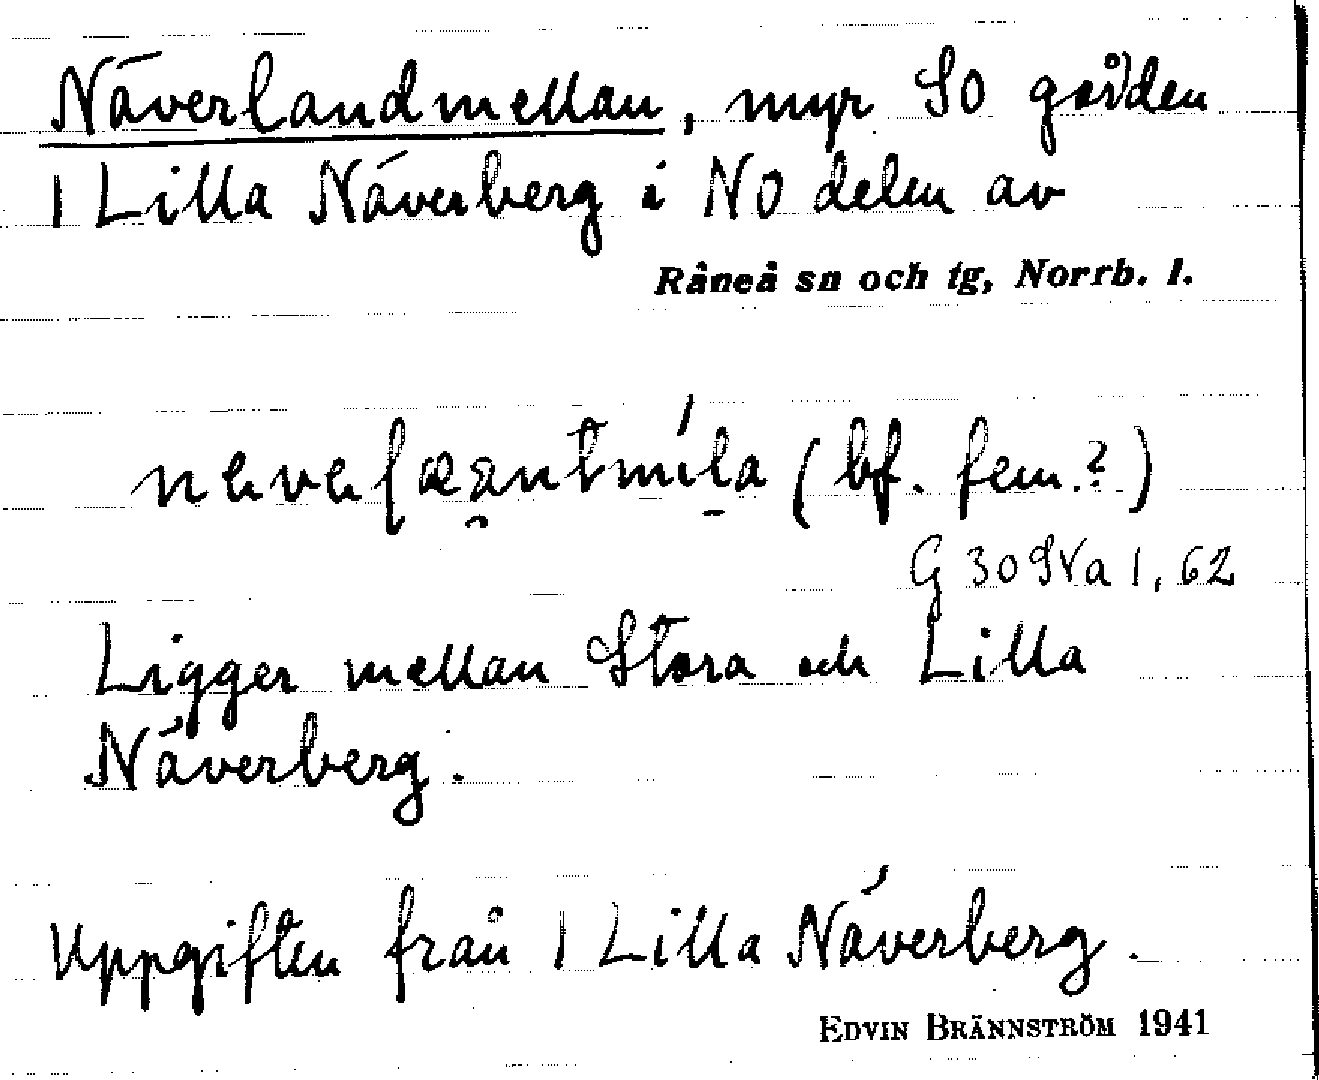 Näverlandmellan, myr SO gården
1 Lilla Näverberg i NO delen av
Råneå sn och tg, Norrb. l.
(bf. fem.?)
G 30 SVa 1, 62
Ligger mellan Stora och Lilla
Näverberg.
Uppgiften från 1 Lilla Näverberg.
EDVIN BRÄNNSTRÖM 1941